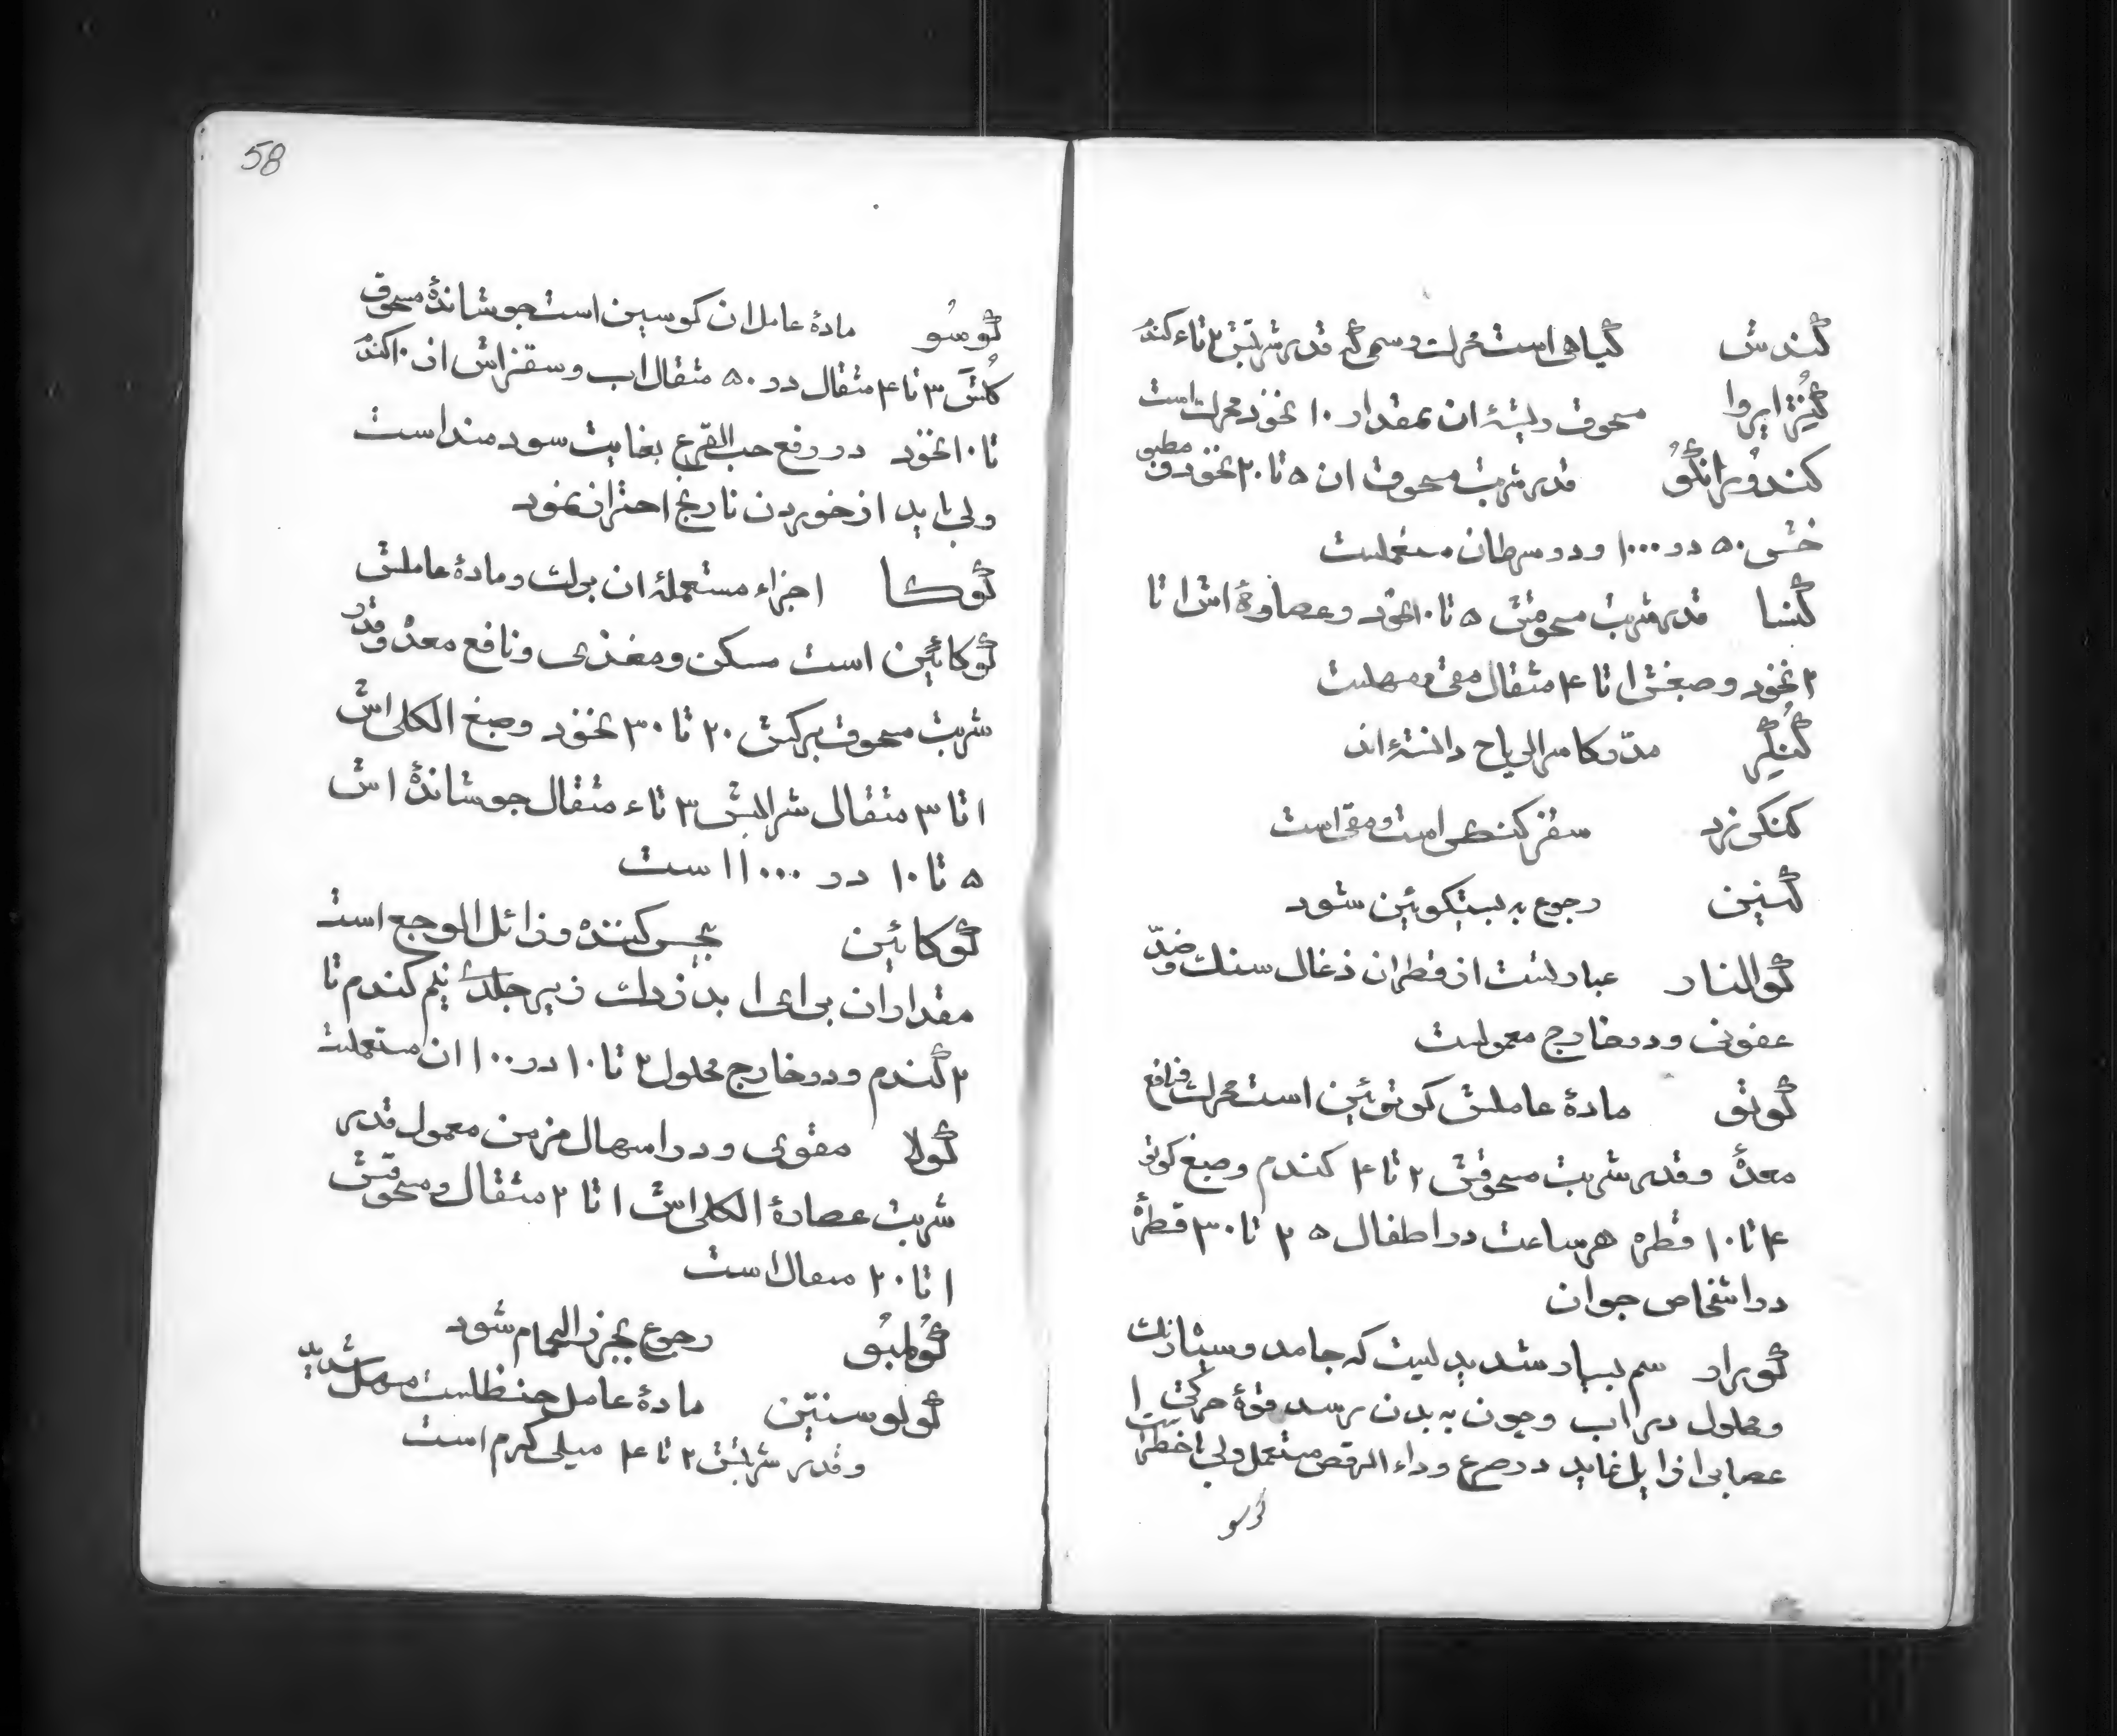 کندش گیاهی است محرک و سمی که قدر شربتش ۲ تا ٤ کندم
کُنْتْرایروا مسحوق ریشهٔ ان بمقدار ۱۰ نخود محرک است
کندوُرانْکوُ قدر شربت مسحوق ان ۵ تا ۲۰ نخود و مطبو
خش ۵۰ در ۱۰۰۰ و در سرطان مستعملست
کنسا قدر شربت مسحوقش ۵ تا ۱۰ نخود و عصارهٔ اش ۱ تا
۲ نخود و صبغش ۱ تا ۴ مثقال مقی و مهلست
کُنْکِر مدّر و کاسر الریاح دانسته‌اند
کنکی زرد سقز کنکر است و مقی است
کنین رجوع به بیتکوئین شود
کوالنار عبارتست از قطران ذغال سنک و ضدّ
عفونی و در خارج معمولست
کوتو مادهٔ عاملش کوتوئین است محرک و نافع
معدهٔ و قدر شربت مسحوقش ۲ تا ۴ کندم و صبغ کوتو
۴ تا ۱۰ قطره هر ساعت در اطفال ۲۵ تا ۳۰ قطرهٔ
در اشخاص جوان
کورار سم بسیار شدیدیست که جامد و سیاه رنک
و محلول در اب و چون به بدن برسد قوهٔ حرکتی ا
عصابی را زایل نماید در صرع و داء الرقص مستعمل ولی با خطر است
کوسو
58
کوسُو مادهٔ عامل ان کوسین است جوشاندهٔ مسحوق
کلُش ۳ تا ۴ مثقال در ۵۰ مثقال اب و سقزاش از ۱۰ کندم
تا ۱۰ نخود در رفع حب القرع بغایت سودمند است
ولی باید از خوردن نارنج احتراز نمود
کوکا اجزاء مستعملهٔ ان برک و مادهٔ عاملش
کوکائین است مسکن و مغذی و نافع معده و قدر
شربت مسحوق برکش ۲۰ تا ۳۰ نخود و صبغ الکلی اش
۱ تا ۳ مثقال شرابش ۳ تا ٤ مثقال جوشاندهٔ اش
۵ تا ۱۰ در ۱۰۰۰ است
کوکائین بحس کننده و زائل الوجع است
مقدار ان برای ا بذرک زیر جلدی نیم کندم تا
۲ کندم و در خارج محلول ۲ تا ۱۰ در ۱۰۰ ان مستعملست
کولا مقوی و در اسهال مزمن معمول قدر
شربت عصارهٔ الکلی اش ۱ تا ۲ مثقال و مسحوقش
۱ تا ۲۰ مثقال است
کوُلمبوُ رجوع بجزر الحمام شود
کولوسنتین مادهٔ عامل حنظلست مسهل شدید
و قدر شربتش ۲ تا ۴ میلی کرم است